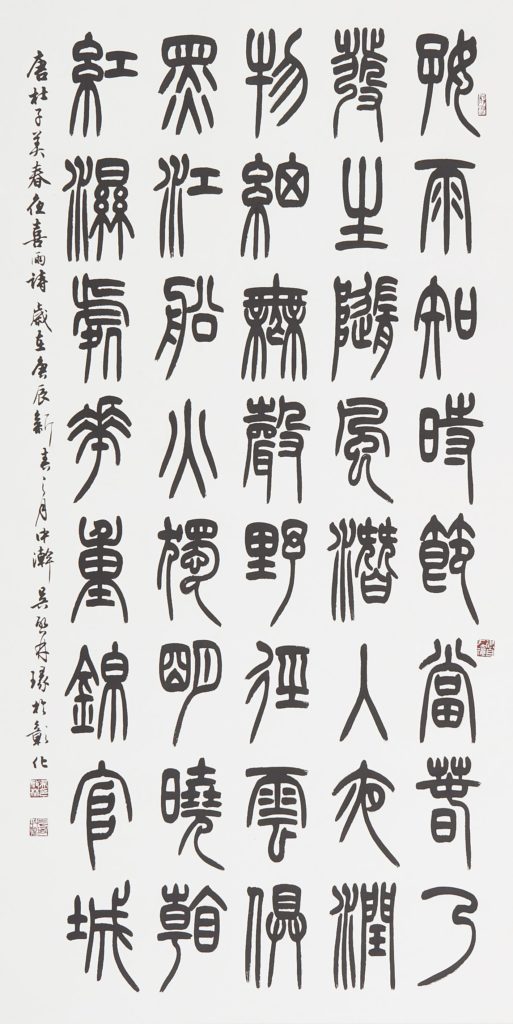 好雨知時節當春乃
發生隨風潛入夜潤
物細無聲野徑雲俱
黑江船火獨明曉看
紅濕處花重錦官城
唐杜子美春夜喜雨詩 歲在庚辰新春之月中澣 吳 於彰化